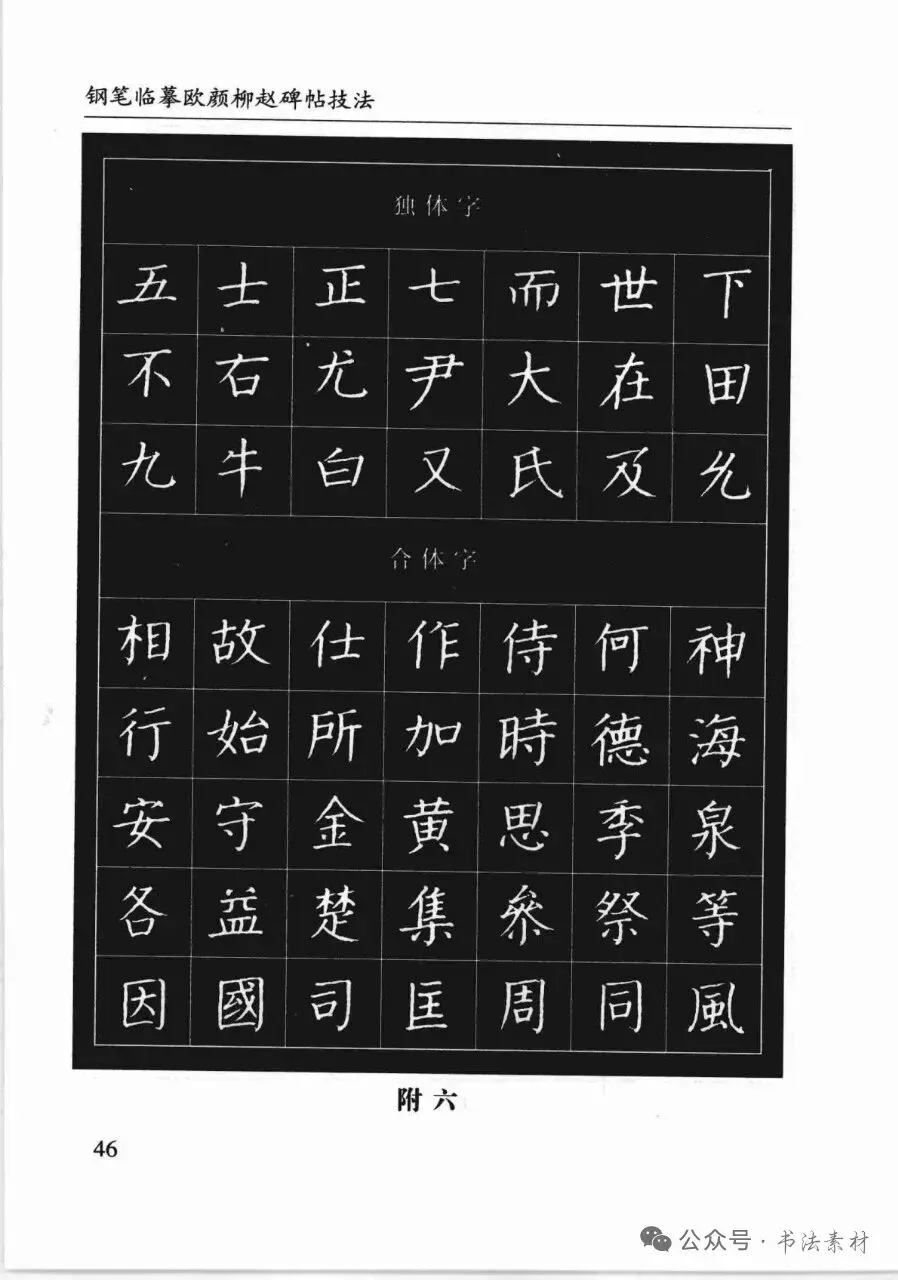 钢笔临摹欧颜柳赵碑帖技法
独体字
五士正七而世下
不右尤尹大在田
九牛白又氏及允
合体字
相故仕作侍何神
行始所加時德海
安守金黄思季泉
各益楚集參祭等
因國司匡周同風
附六
46
公众号·书法素材